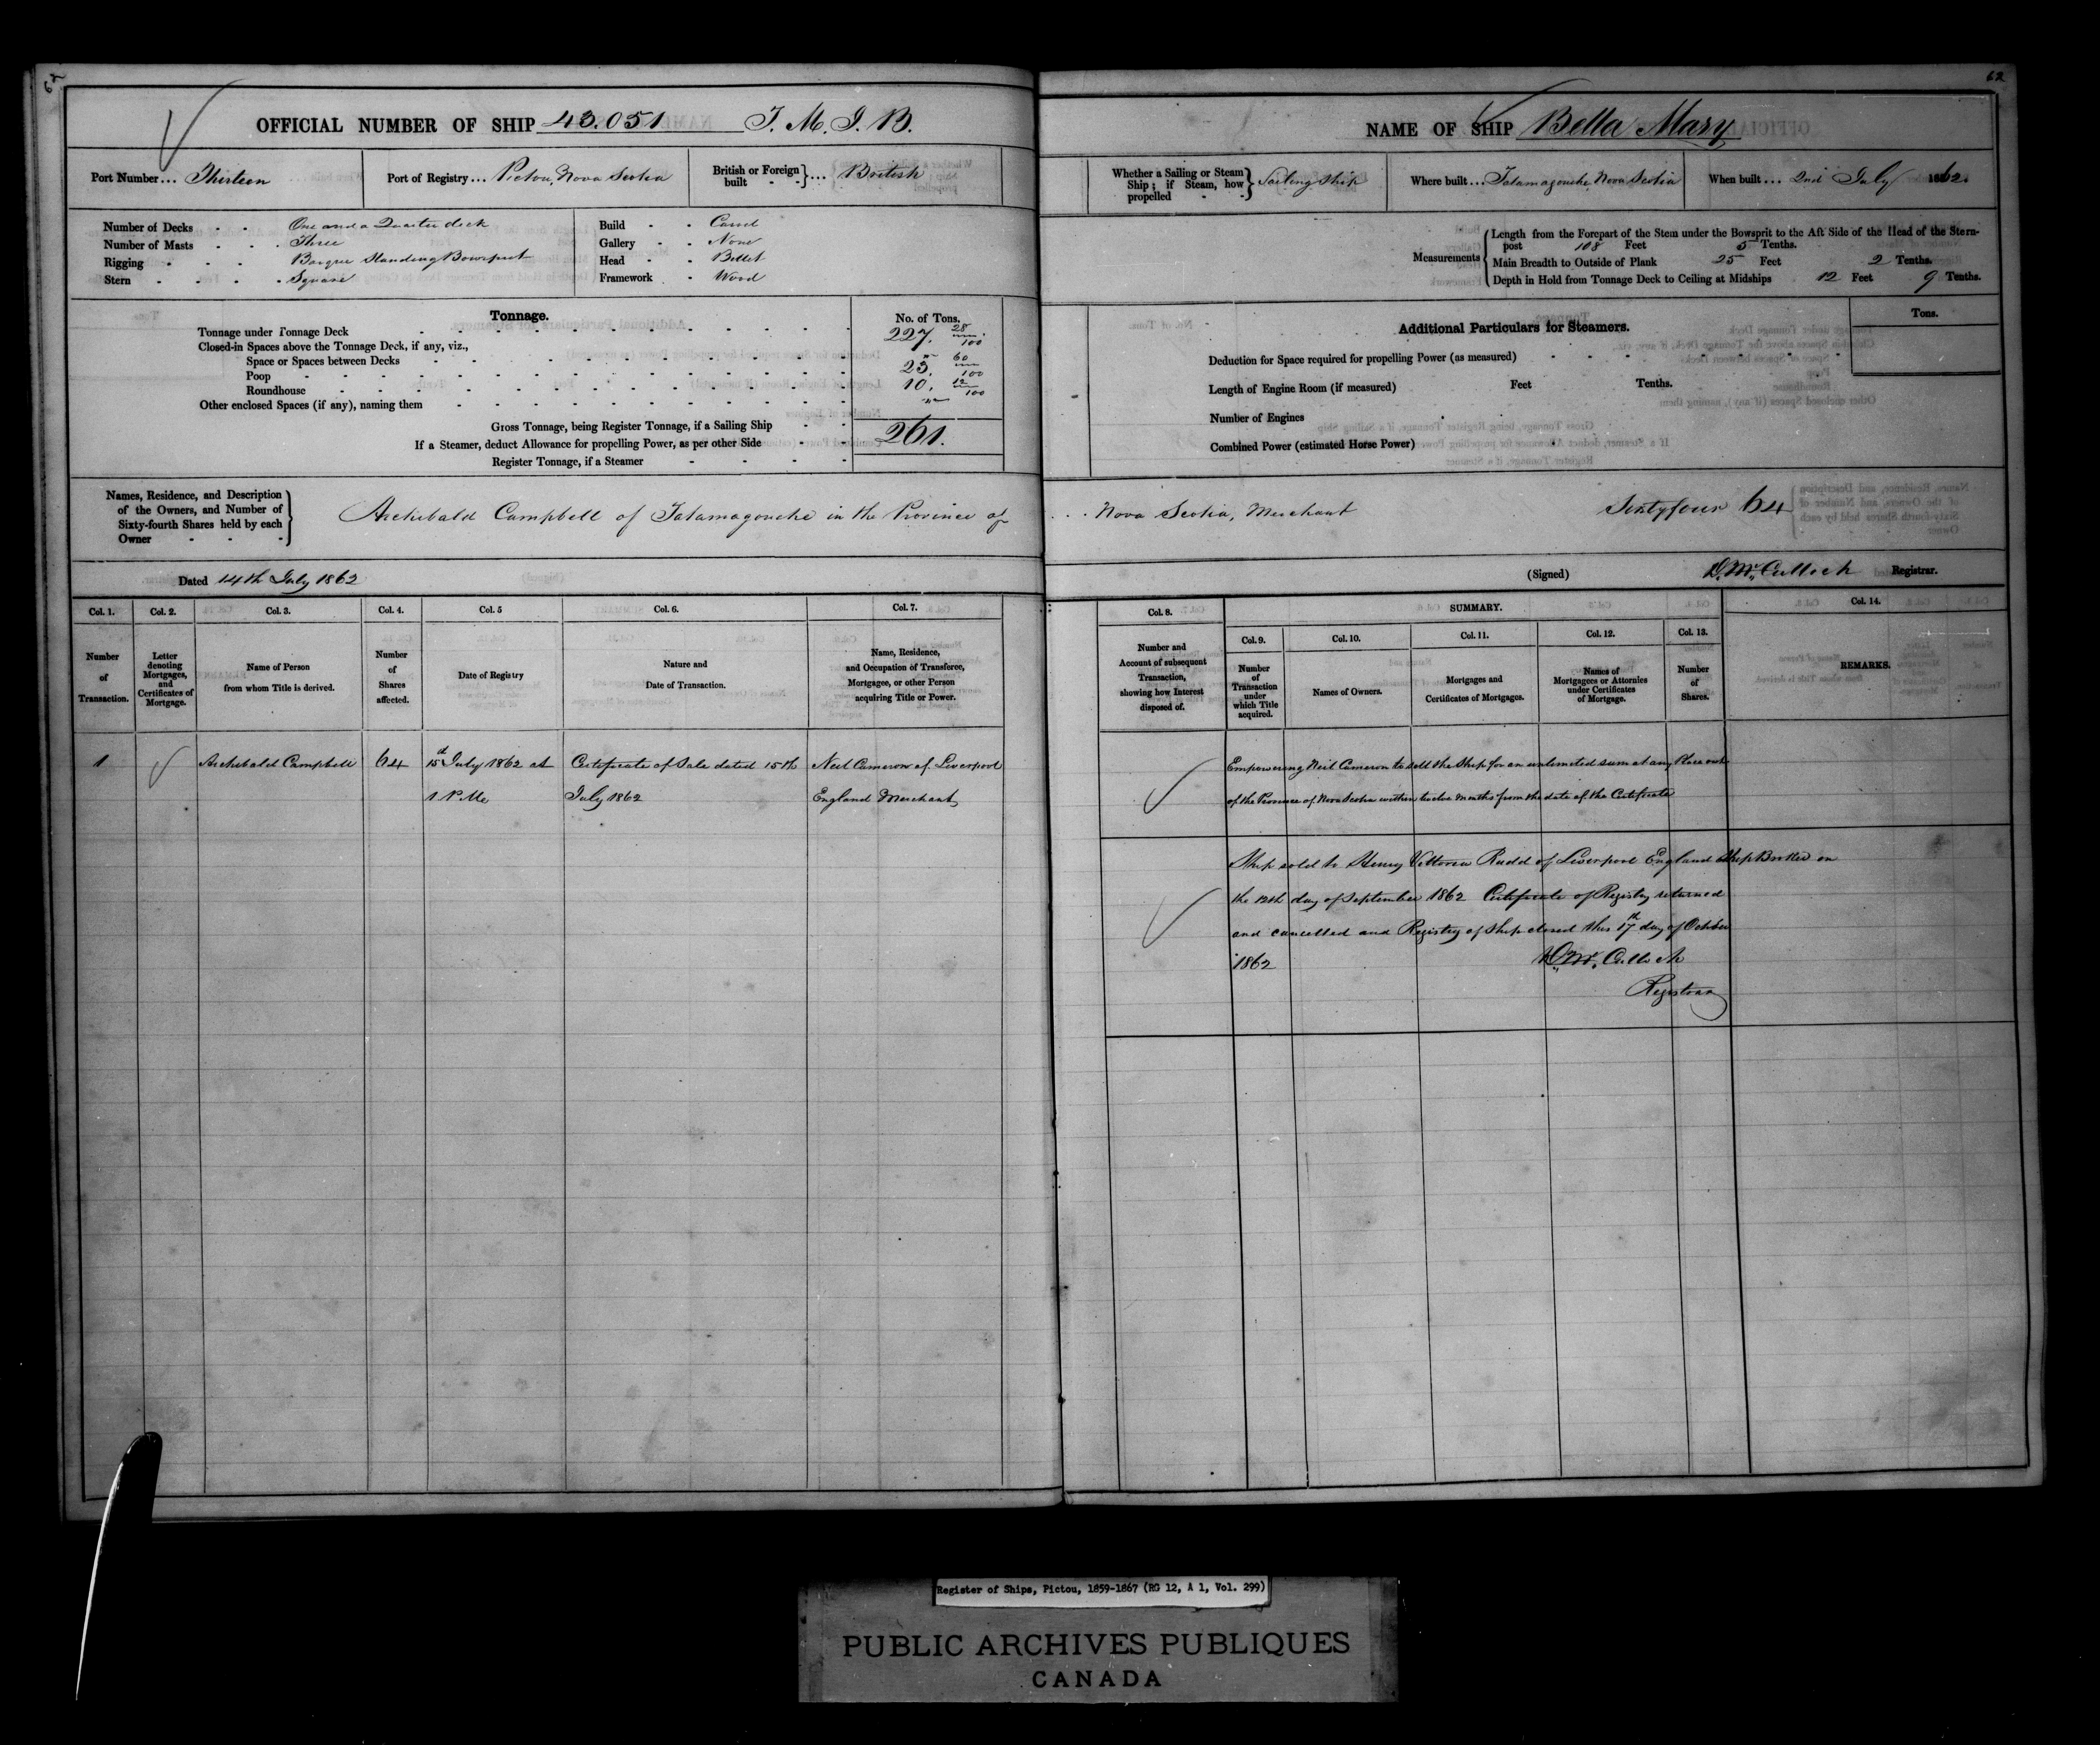 62
OFFICIAL NUMBER OF SHIP 43.051 T. M. J. B.
Port Number... Thirteen
Port of Registry... Pictou, Nova Scotia
British or Foreign built - -}... British
Number of Decks - - One and a Quarter deck
Number of Masts - - - Three
Rigging - - - Barque Standing Bowsprit
Stern - - - - Square
Build - - Carvel
Gallery - - None
Head - - Billet
Framework - Wood
Tonnage.
No. of Tons.
Tonnage under Tonnage Deck 227. 28/100
Closed-in Spaces above the Tonnage Deck, if any, viz.,
Space or Spaces between Decks "
Poop 23. 60/100
Roundhouse 10. 12/100
Other enclosed Spaces (if any), naming them "
Gross Tonnage, being Register Tonnage, if a Sailing Ship 261.
If a Steamer, deduct Allowance for propelling Power, as per other Side
Register Tonnage, if a Steamer
Names, Residence, and Description
of the Owners, and Number of
Sixty-fourth Shares held by each
Owner
Archibald Campbell of Tatamagouche in the Province of
Dated 14th July 1862
Col. 1. Col. 2. Col. 3. Col. 4. Col. 5 Col. 6. Col. 7.
Number of Transaction.
Letter denoting Mortgages, and Certificates of Mortgage.
Name of Person from whom Title is derived.
Number of Shares affected.
Date of Registry
Nature and Date of Transaction.
Name, Residence, and Occupation of Transferee, Mortgagee, or other Person acquiring Title or Power.
1 Archibald Campbell 64 15th July 1862 at Certificate of Sale dated 15th Neil Cameron of Liverpool
1 P.M. July 1862 England Merchant
62
NAME OF SHIP Bella Mary
Whether a Sailing or Steam Ship; if Steam, how propelled - -} Sailing Ship
Where built... Tatamagouche Nova Scotia
When built... 2nd July 1862.
Measurements
Length from the Forepart of the Stem under the Bowsprit to the Aft Side of the Head of the Stern-
post 108 Feet 5 Tenths.
Main Breadth to Outside of Plank 25 Feet 2 Tenths.
Depth in Hold from Tonnage Deck to Ceiling at Midships 12 Feet 9 Tenths.
Additional Particulars for Steamers.
Tons.
Deduction for Space required for propelling Power (as measured)
Length of Engine Room (if measured) Feet Tenths.
Number of Engines
Combined Power (estimated Horse Power)
Nova Scotia, Merchant Sixty four 64
(Signed) D. McCulloch Registrar.
Col. 8. SUMMARY. Col. 14.
Col. 9. Col. 10. Col. 11. Col. 12. Col. 13.
Number and Account of subsequent Transaction, showing how Interest disposed of.
Number of Transaction under which Title acquired.
Names of Owners.
Mortgages and Certificates of Mortgages.
Names of Mortgagees or Attornies under Certificates of Mortgage.
Number of Shares.
REMARKS.
Empowering Neil Cameron to sell the Ship for an unlimited sum at any Place out
of the Province of Nova Scotia within twelve months from the date of the Certificate
Ship sold to Henry Rudd of Liverpool England Ship Broker on
the 12th day of September 1862 Certificate of Registry returned
and cancelled and Registry of Ship closed this 17th day of October
1862 D. McCulloch
Registrar
Register of Ships, Pictou, 1859-1867 (RG 12, A 1, Vol. 299)
PUBLIC ARCHIVES PUBLIQUES
CANADA